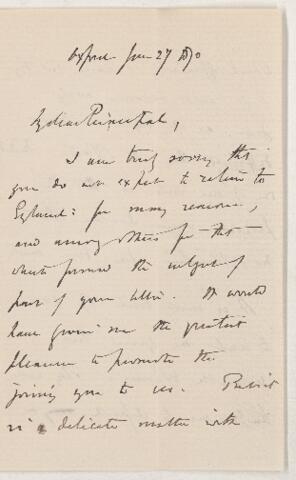 Oxford Jan 27 1870
My dear Principal,
I am truly sorry that
you do not expect to return to
England: for many reasons,
and among others for that
which formed the subject of
part of your letter. It would
have given me the greatest
pleasure to promote the
joining you to us. But it
is a delicate matter with